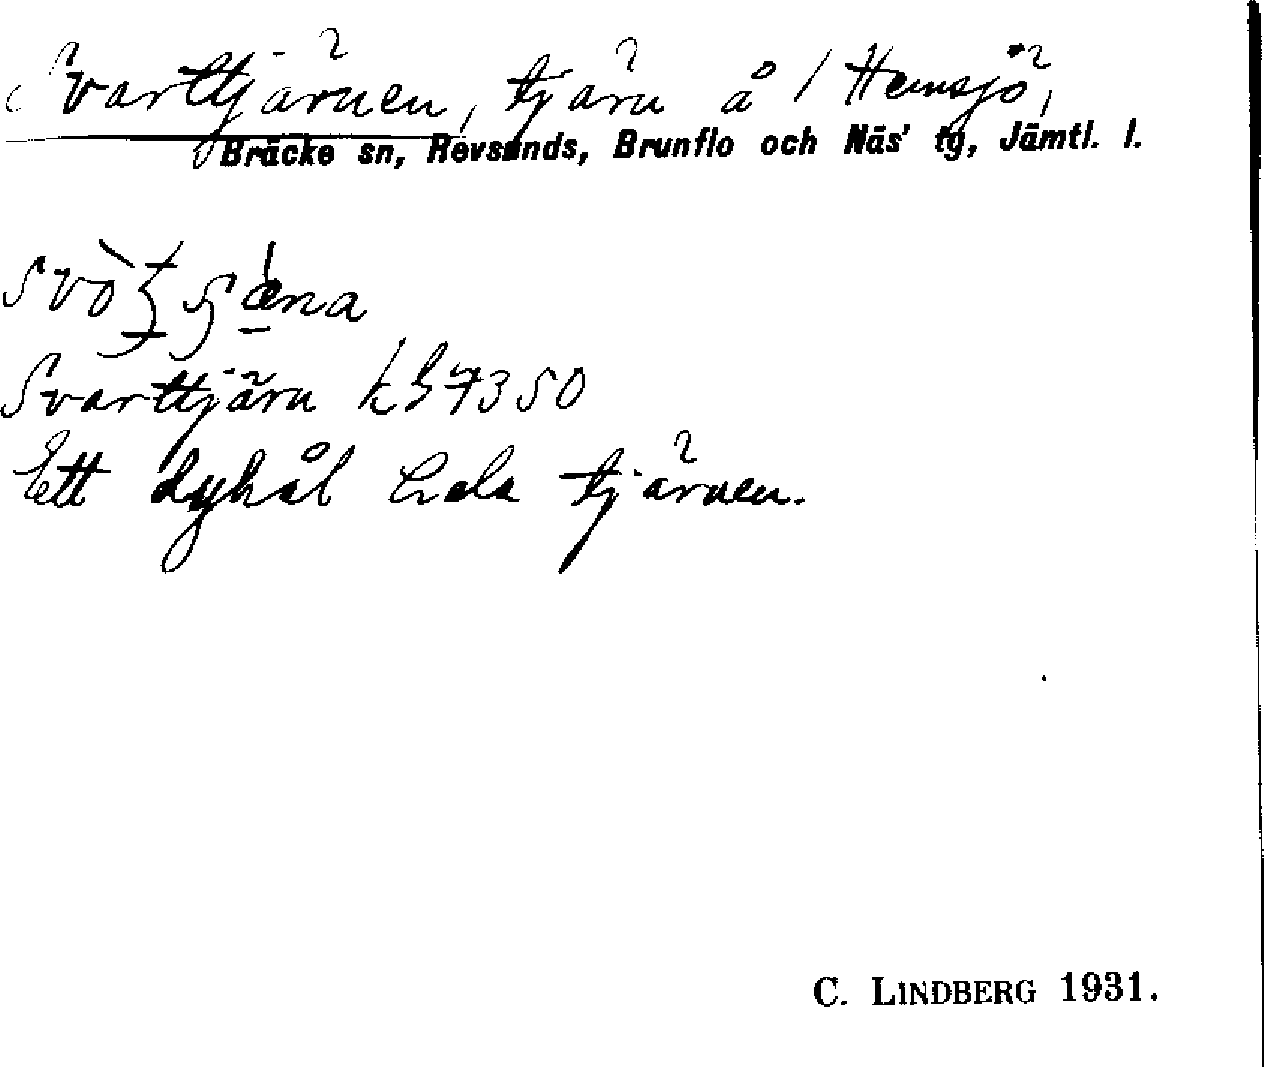 Svarttjärnen, tjärn å / Hemsjö,
Bräcke sn, Revsunds, Brunflo och Näs' tg, Jämtl. l.
Svarttjärn
Ett dyhål hela tjärnen.
C. LINDBERG 1931.